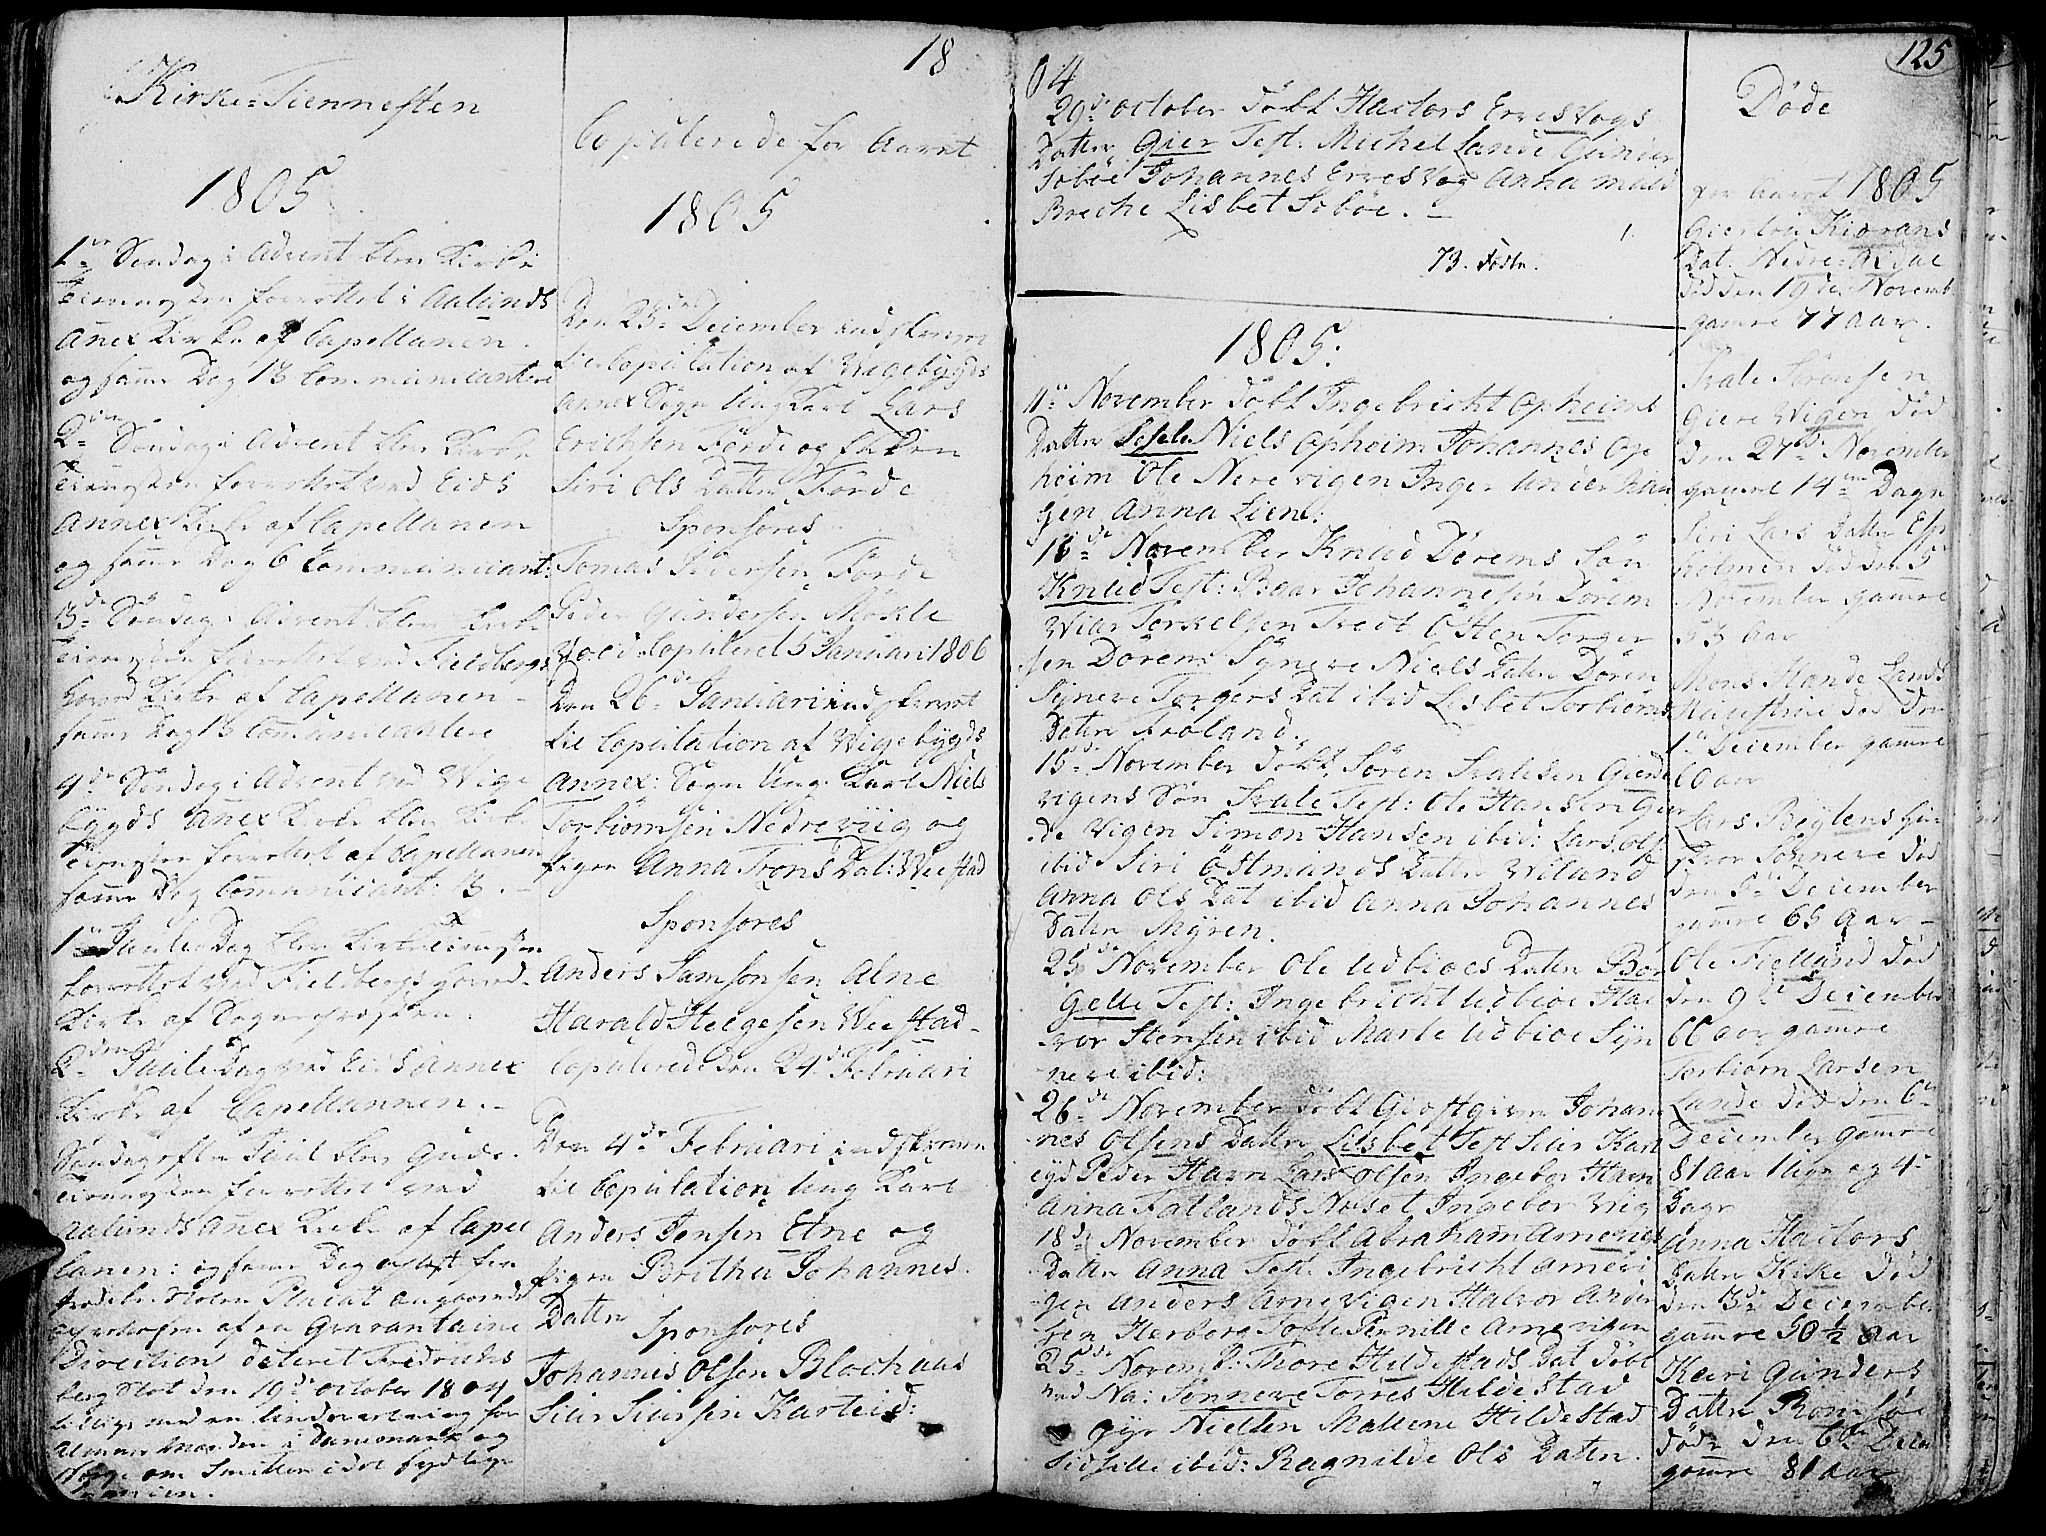 18
Kirke-Tiennesten
1805
1te Søndag i Advent blev Kirke
tiennesten forrettet i Aalunds
Anex Kirke af Capellanen.
og samme Dag 13 Communicantere
2den Søndag i Advent blev Kirke
tiennesten forrettet ved Eids
Annex Kirke af Capellanen
og samme Dag 6 Communicant:
3de Søndag i Advent blev Kirke
tiennesten forrettet ved Fieldbergs
hoved Kirke af Capellanen
samme Dag 13 Communicantere
4de Søndag i Advent ved Wige
bygds Anex Kirke blev Kirke
tiennesten forrettet af Capellanen
samme Dag Communicant: 13.
1te Juule Dag blev Kirketiennesten
forrettet ved Fieldbergs hoved
Kirke af Sognepræsten.
2den Juule Dag ved Eids Annex
Kirke af Capellannen.
Søndag efter Juul blev Guds
tiennesten forrettet ved
Aalunds Anex Kirke af Capel
lanen: og samme Dag oplæst fra
Prædike Stolen Placat angaaende
af en Qvarantaine
Direction dateret Fredrichs
berg Slot den 19de October 1804
tillige med en Underretning for
Almue Manden i Dannemark og
Norge om Smitten i det sydlige
Copulerede for Aaret
1805
Den 23de December indskrevne
til Copulation af Wigebygds
Annex Sogn Ung Karl Lars
Erichsen Førde og Enken
Siri Ols Datter Førde
Sponsores
Tomas Sidersen Førde
Peder Gundersen Møkle
Copuleret 5 Januari 1806
Den 26de Januari indskrevet
til Copulation af Wigebygds
Annex: Sogn Ung Karl Niels
Torbiornsen Nedre viig og
pigen Anna Trons Dat: Wee stad
Sponsores
Anders Samsonsen Alne
Harald Helgesen Wee stad
Copulerede den 24de Februari
Den 4de Februari indskreven
til Copulation Ung Karl
Anders Jensen Etne og
pigen Britha Johannes
Datter
Sponsores
Johannis Olsen Blochuus
Siur Siursen Karteid:
04
29de October døbt Hactors Erresvogs
Datter Gier Test: Michel Lande Gunder
Søbøe Johannes Erresvog Anna
Breche Lisbet Søbøe.
73. Fødte.
1805:
11te November døbt Ingebricht Opheims
Datter Sesele Niels Opheim Johannes Op
heim Ole Nere vigen Inger Underhau
gen Anna Liene:
16de November Knud Dørems Søn
Knud Test: Baar Johannesen Dørem
Wiar Torkelsen Tvedt Østen Torger
sen Dørem Synneve Niels Daten Dørem
Synneve Torgers Dat ibid Lisbet Torbiorns
Daten Froland.
15de November døbt Søren Ivalesen Gierde
vigens Søn Ivale Test: Ole Hansen Gier
de Vigen Simon Hansen ibid: Lars Ols
ibid Siri Østmands Daten Wiland
Anna Ols Dat ibid Anna Johannes
Daten Myren.
25de November Ole Udbioes Daten Bor
gelle Test: Ingebricht Udbioe Hal
vor Stensen ibid Marte Udbioe Syn
neve ibid:
26de November døbt Giestgiver Johan
nes Olsens Datter Lisbet Test Siur Kart
eyd Peder Havn Lars Olsen Ingebor Havn
Anna Fatlands Næset Ingebor Viig
18de November døbt Abraham Amones
Datter Anna Test: Ingebricht Amevi
gen Anders Amevigen Halvor Ander
sen Herborg Tofte Pernille Amevigen
25de Novemb: Thore Hildestads Dat døbt
ved Na: Sønneve Torres Hildestad
Gyr Nielsen Mallene Hildestad
Sidselle ibid: Ragnilde Ols Daten.
125
Døde
for Aaret 1805
Kiorans
Dat. Nedre
død den 19de Novemb
gamel 77 aar.
Ivale Sørensen
Giere Vigen død
den 27de November
gamel 14 Dage
Siri Lars Daten Es
holmen død den 5
November gamel
53 Aar
Mons Hande Lands
død den
1te December gamel
60 aar
Lars Bejtlens
Sønneve død
den 5te December
gamel 65 Aar
Ole Fielland død
den 9de December
66 aar gamel
Torbiorn Larsen
Lande død den 6te
December gamel
81 aar 1 Uge og 4
Dage
Anna Hactors
Daten Kike død
den 3de December
gamel 50½ Aar
Kari Gunders
Datter Romsøe
døde den 6te Decem
gamel 81 aar